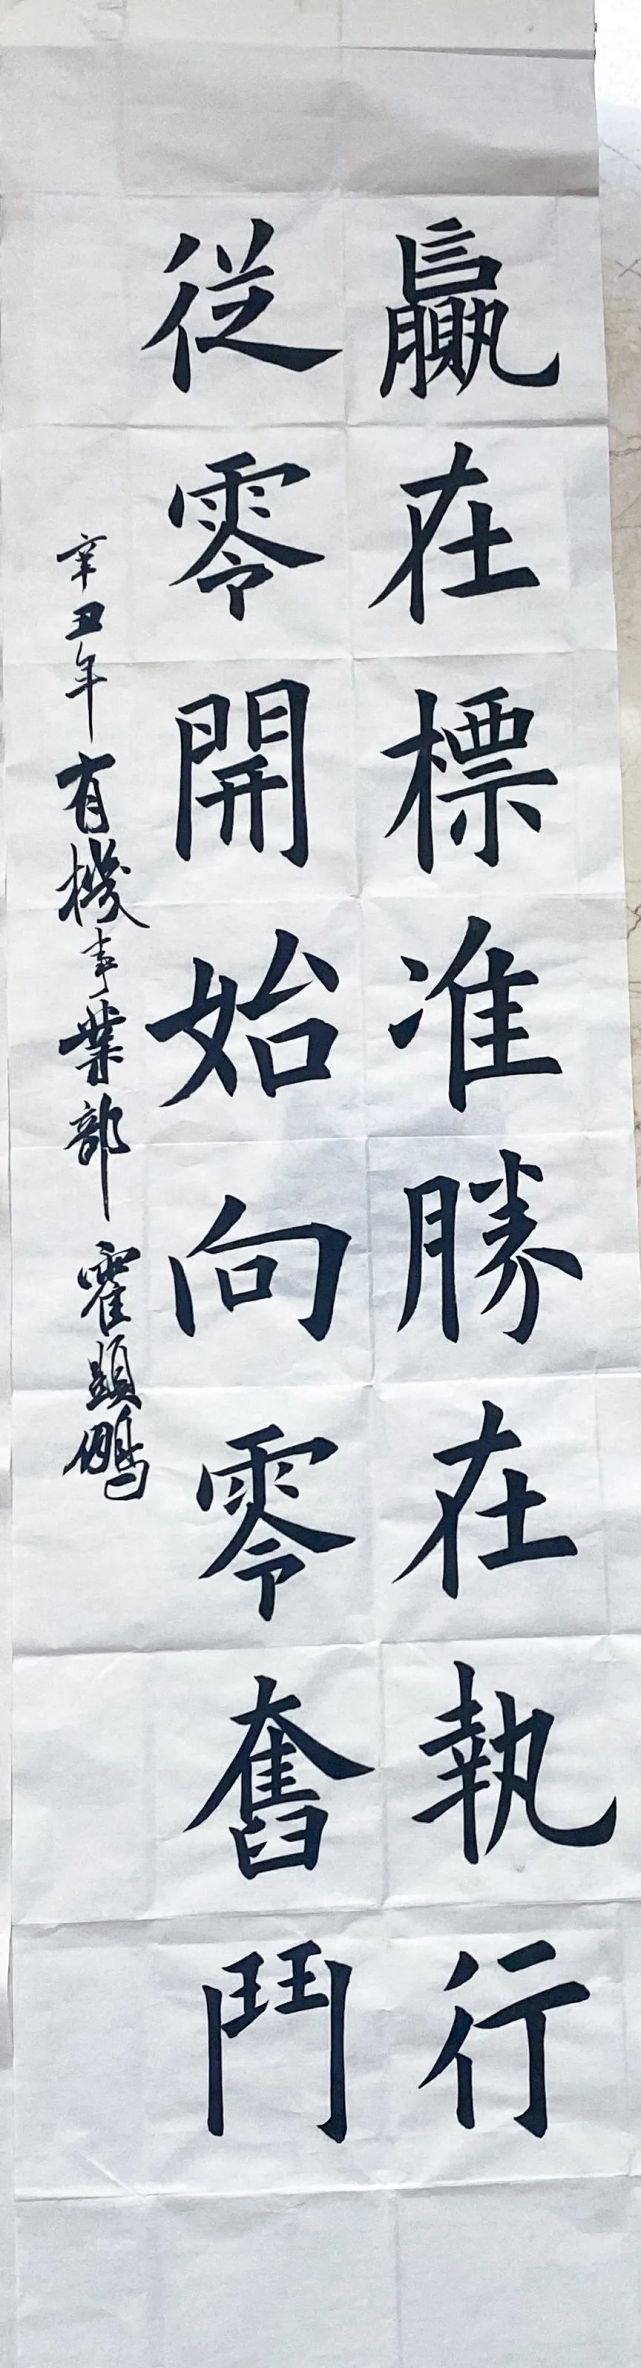 贏在標准勝在執行
從零開始向零奮鬥
辛丑年有機事業部 霍顕鵬